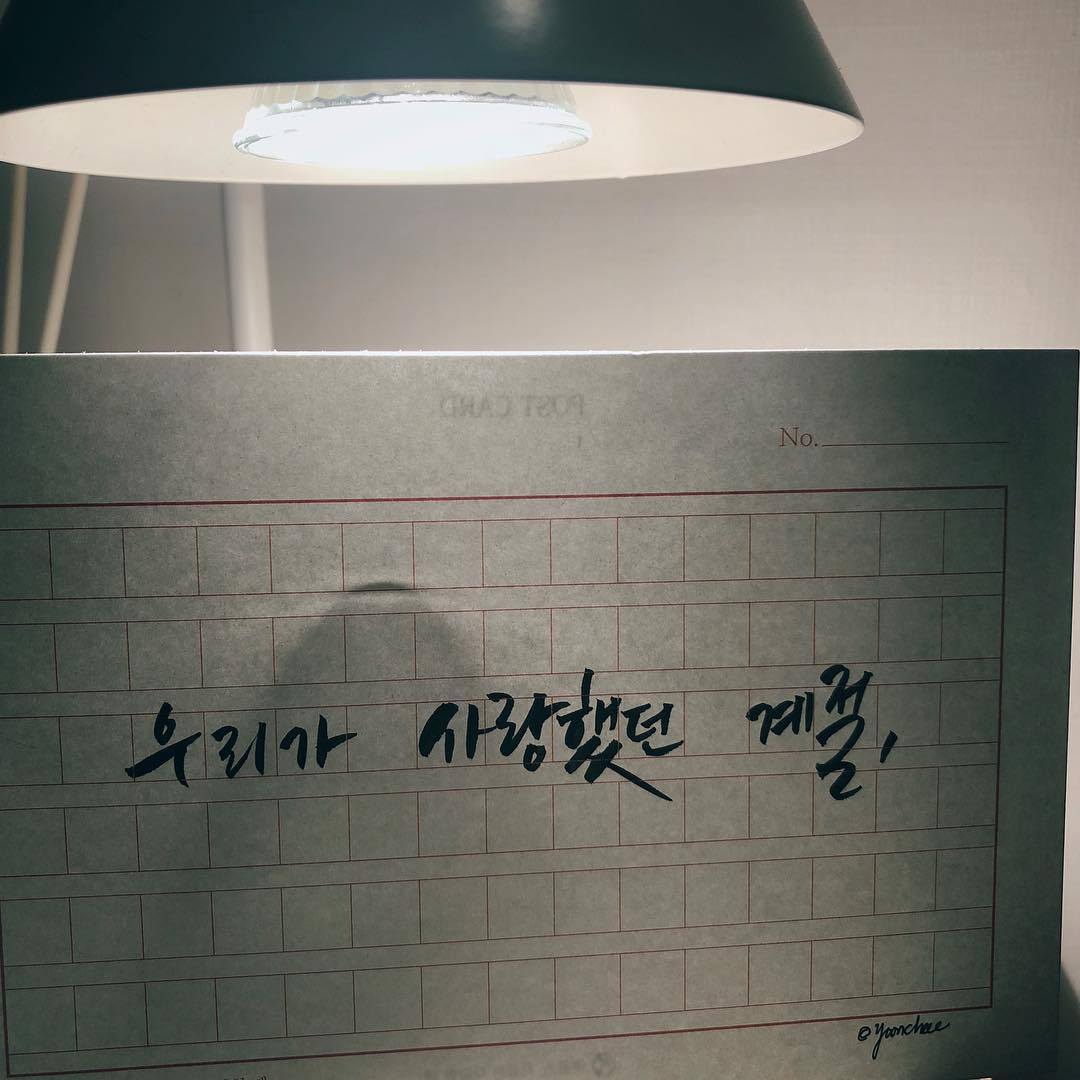 POST CARD
No.
우리가 사랑했던 계절,
©Yoonchae